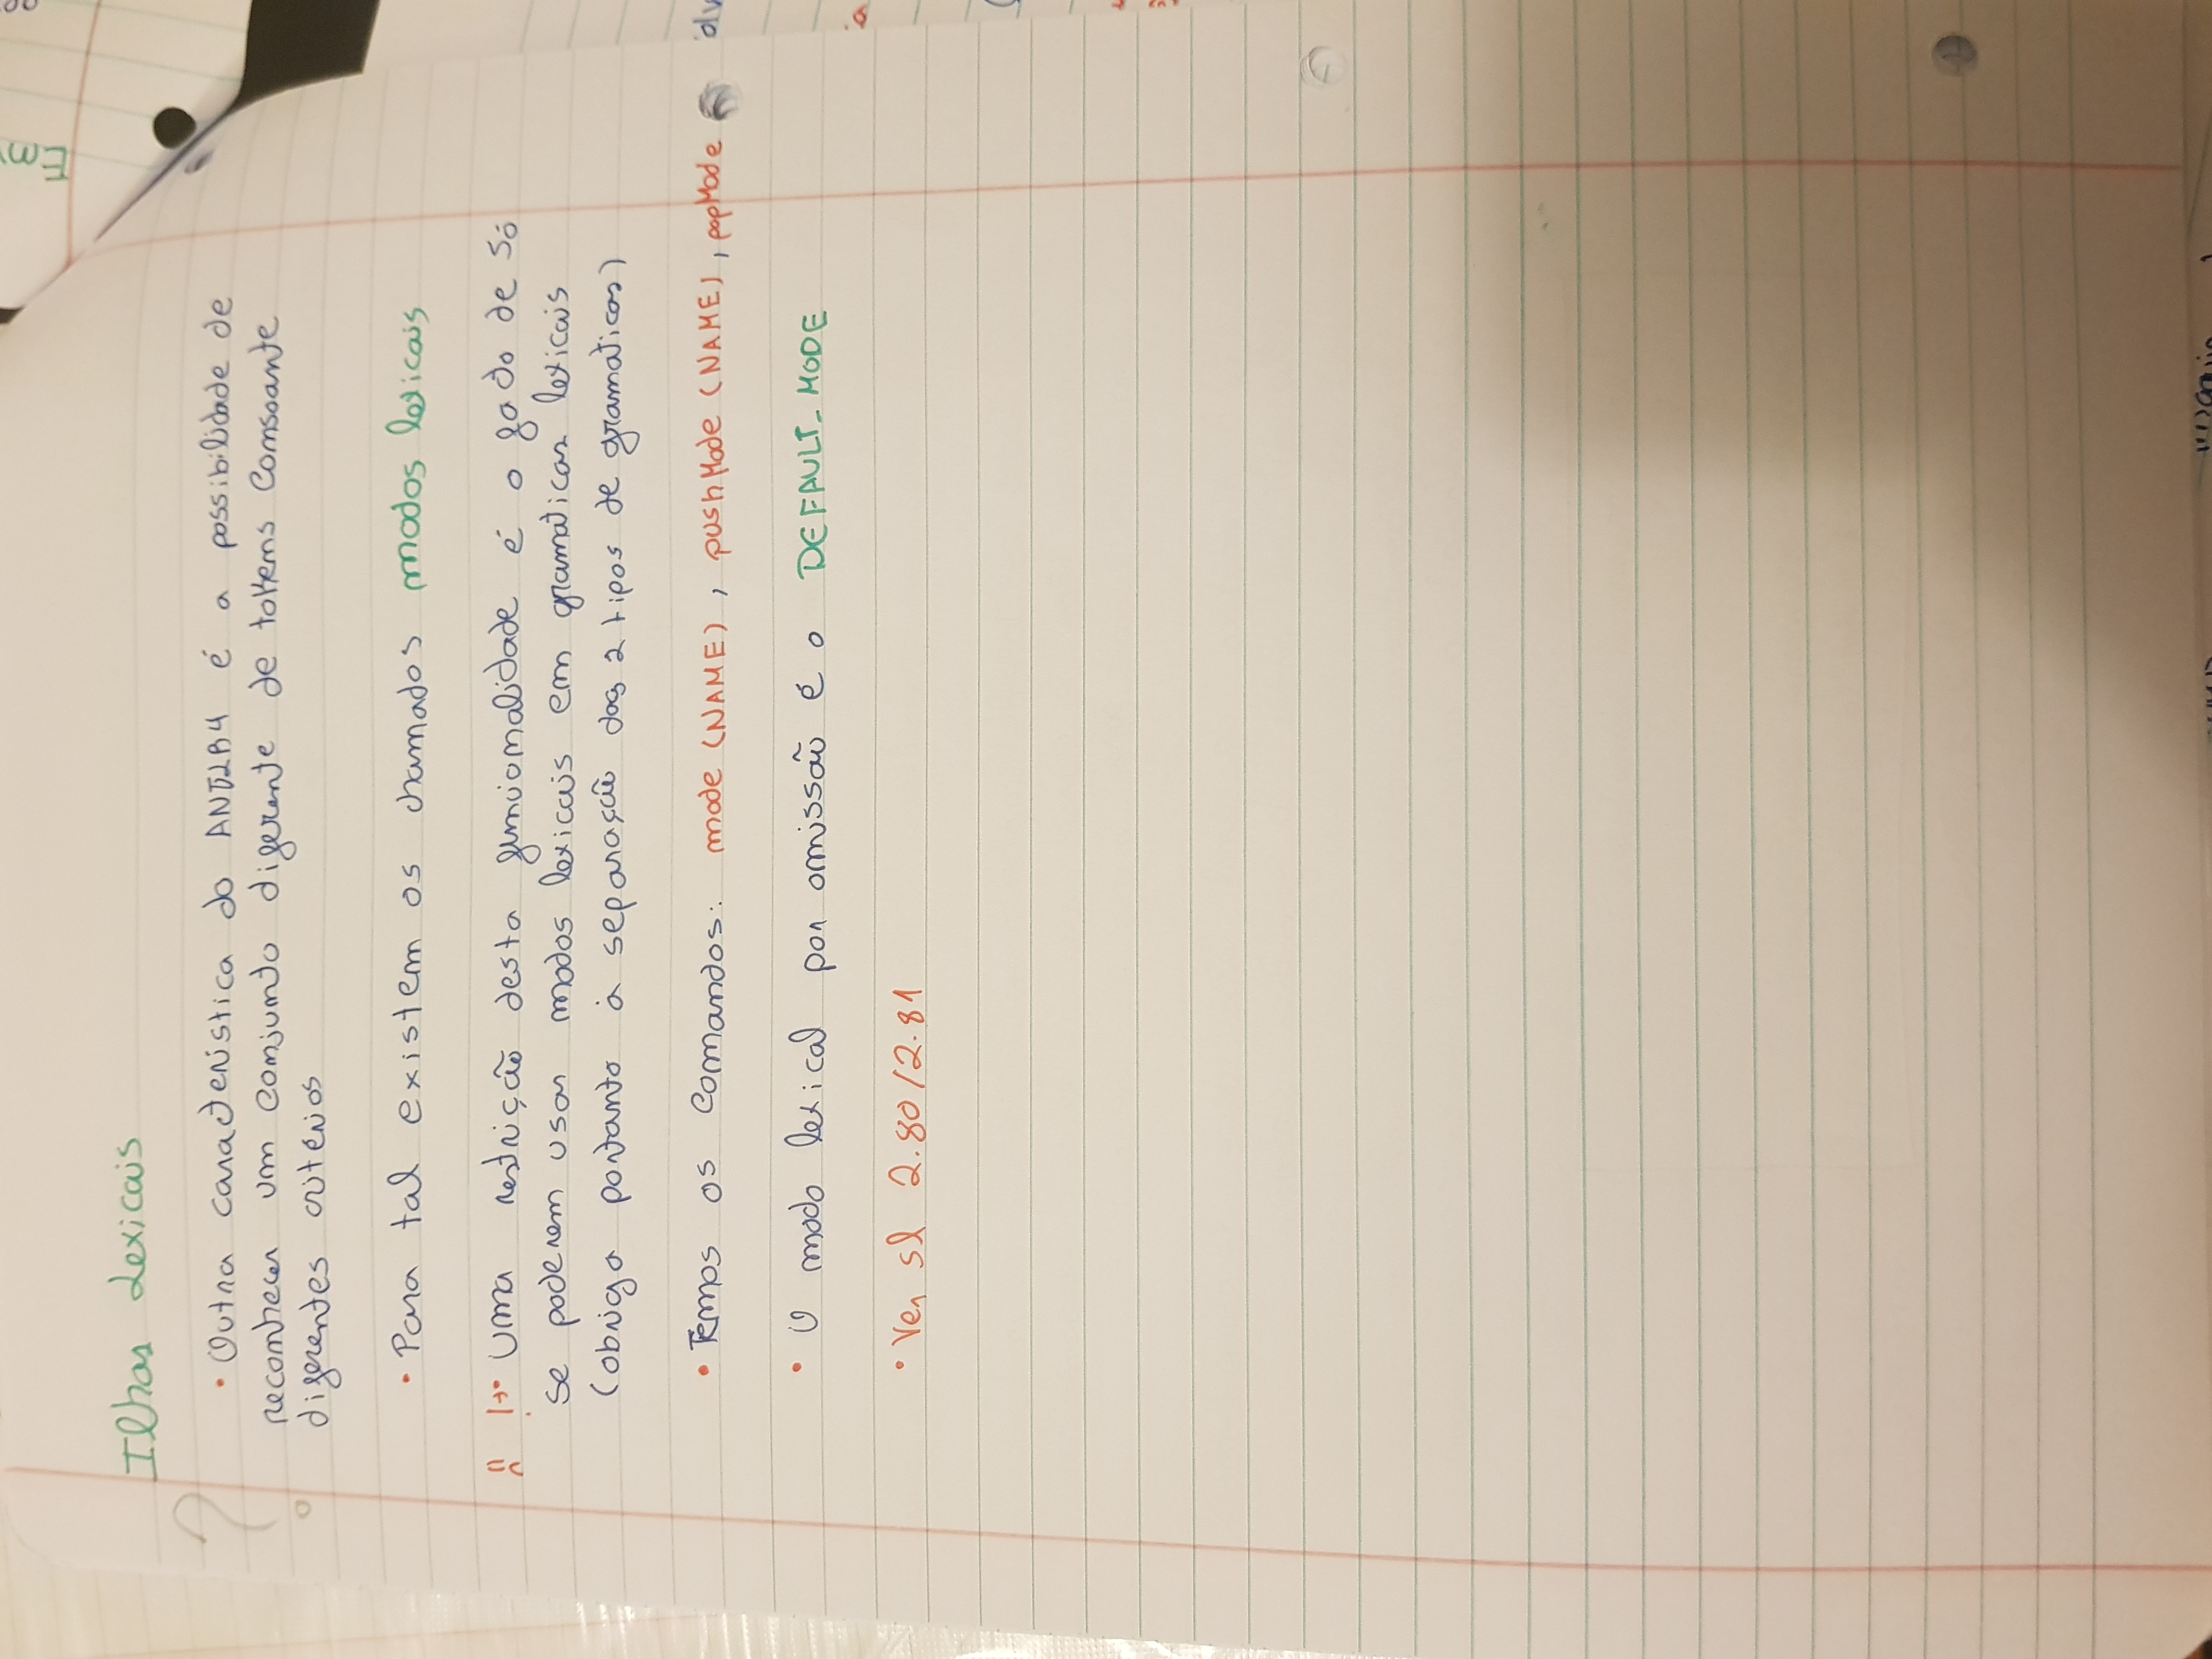 Ilhas Lexicais
?
• Outra característica do ANTLR4 é a possibilidade de
reconhecer um conjunto diferente de tokens consoante
diferentes critérios
• Para tal existem os chamados modos lexicais
!→• Uma restrição desta funcionalidade é o fato de só
se poderem usar modos lexicais em gramaticas lexicais
(obriga portanto à separação das 2 tipos de gramaticas)
• Temos os comandos: mode (NAME), pushMode (NAME), popMode
• O modo lexical por omissão é o DEFAULT_MODE
• Ver sl 2.80/2.81
Em